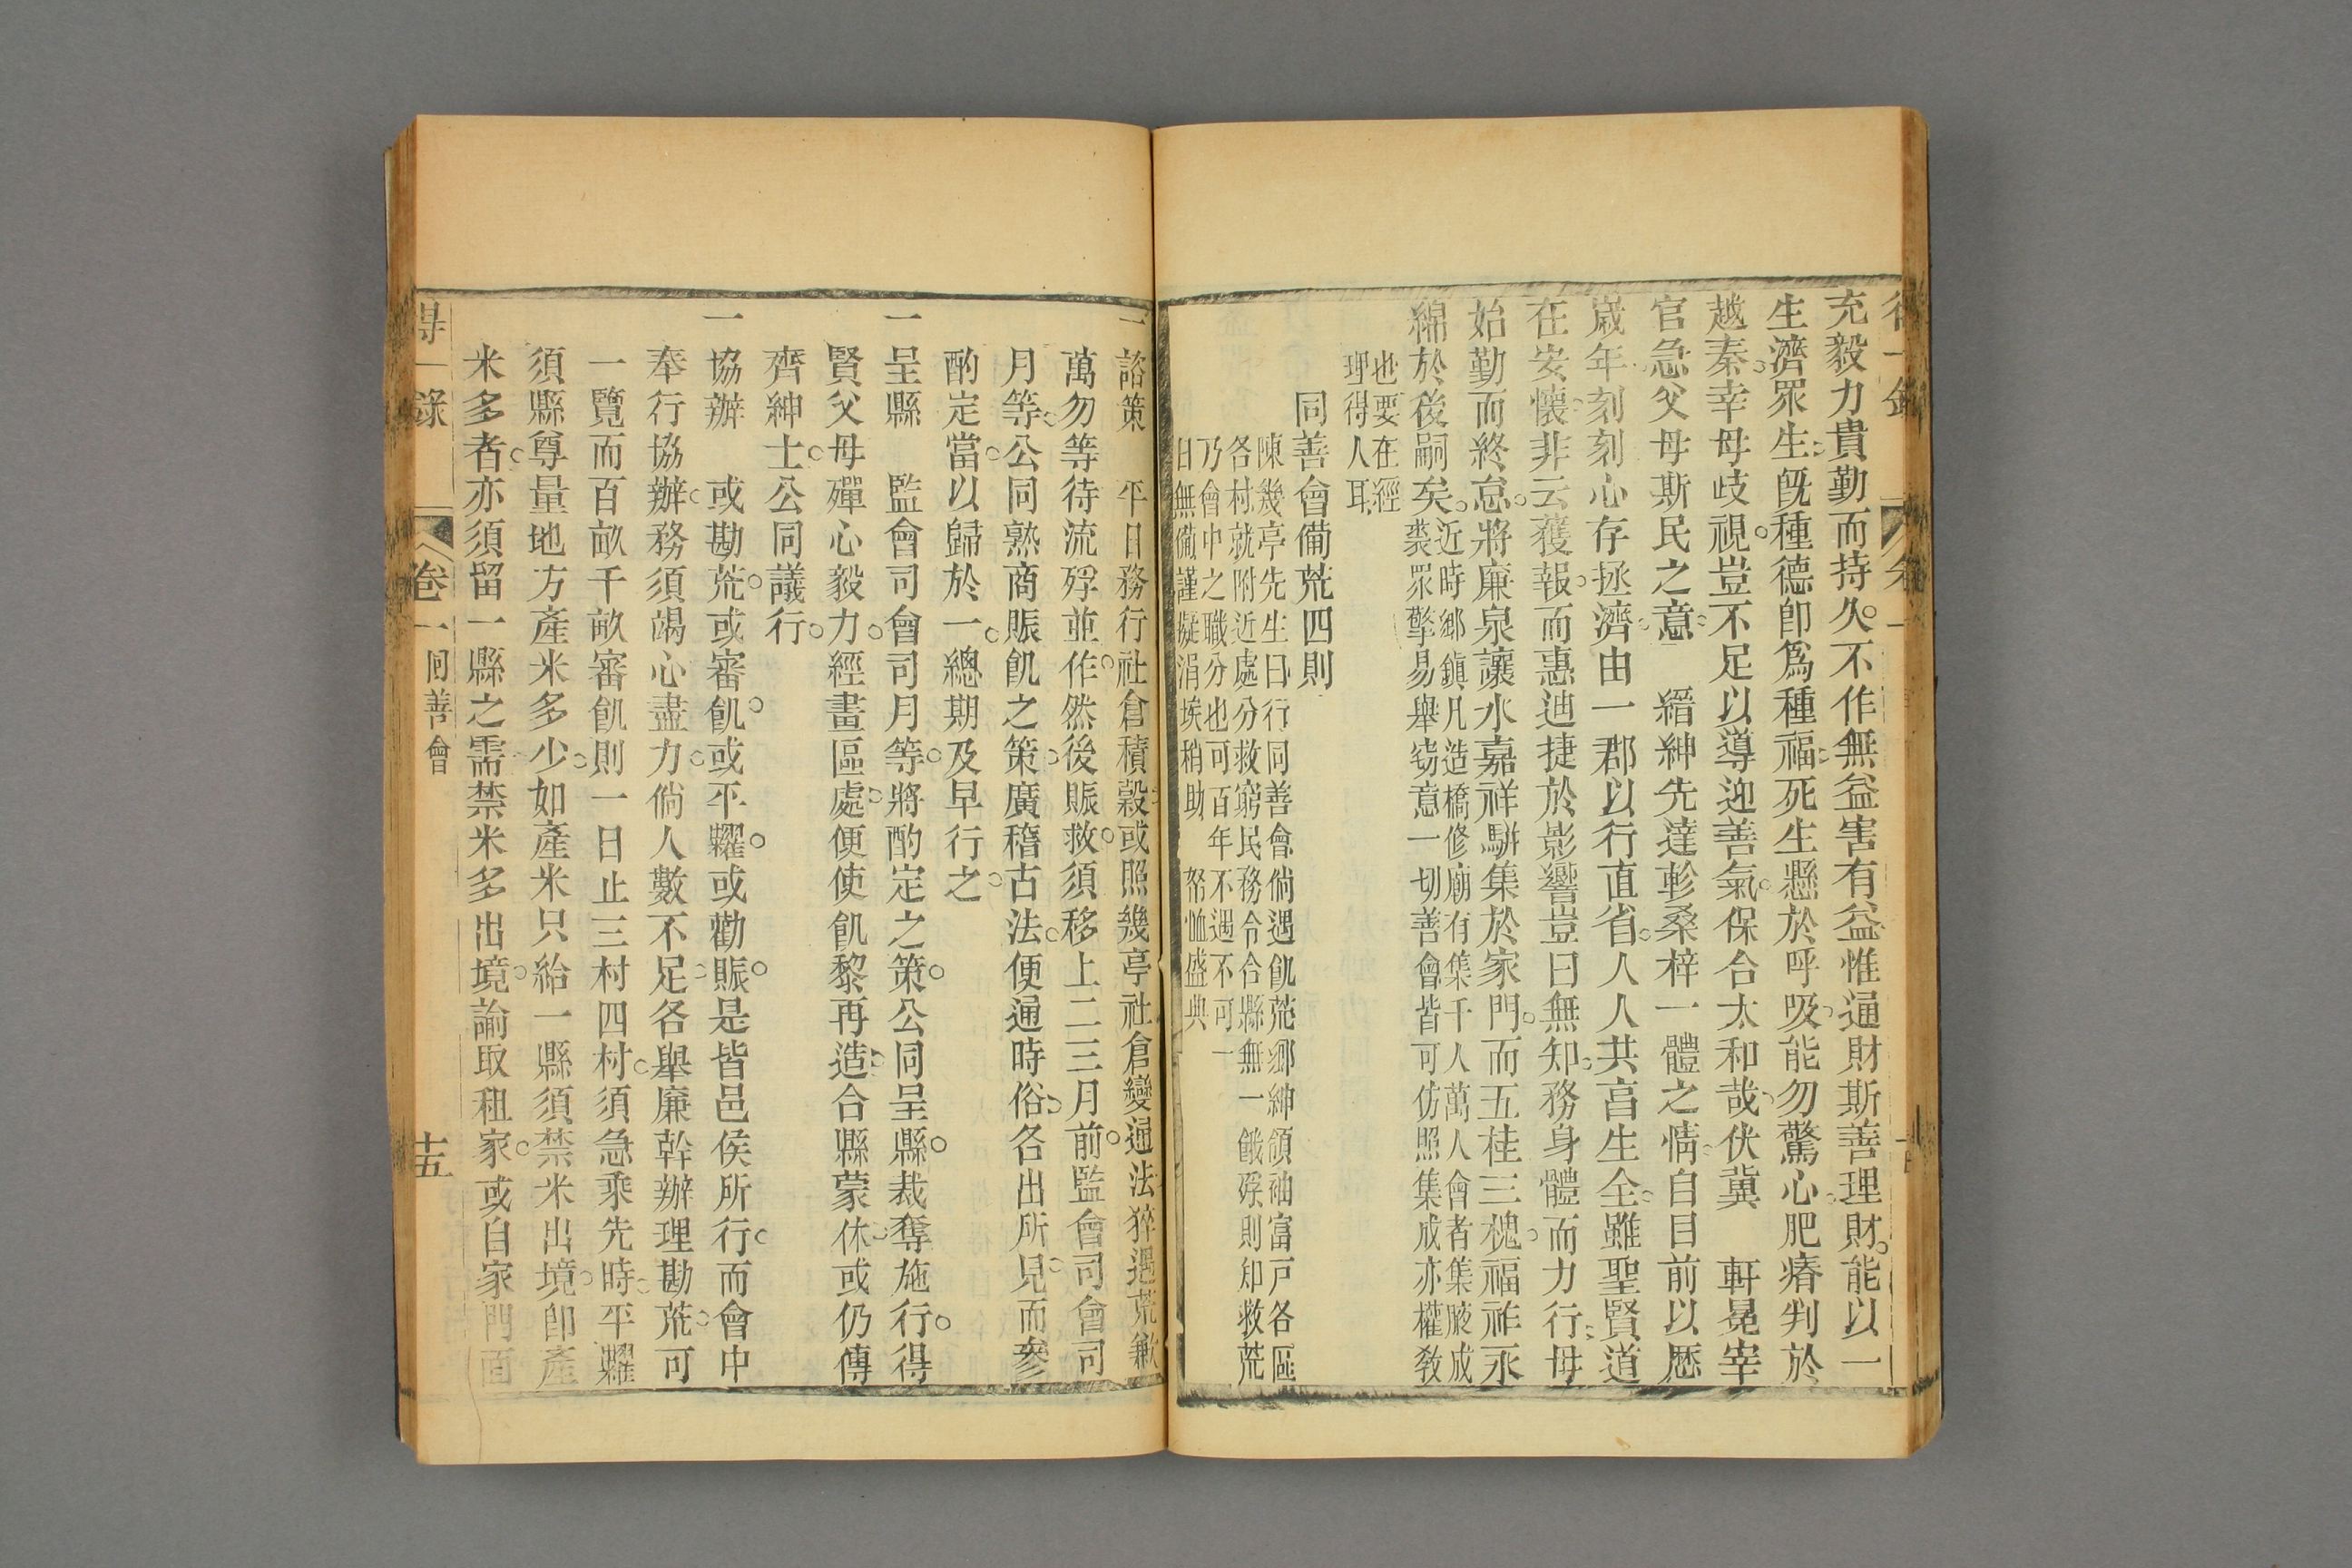 充毅力貴勤而持久不作無益害有益惟通財斯善理財能以一
生濟眾生旣種德卽爲種福死生懸於呼吸能勿驚心肥瘠判於
越秦幸毋歧視豈不足以導迎善氣保合太和哉伏冀　軒冕宰
官急父母斯民之意　縉紳先達軫桑梓一體之情自目前以歷
歲年刻刻心存拯濟由一郡以行直省人人共亯生全雖聖賢道
在安懷非云獲報而惠迪捷於影響豈曰無知務身體而力行毋
始勤而終怠將廉泉讓水嘉祥駢集於家門而五桂三槐福祚永
綿於後嗣矣
近時鄉鎮凡造橋修廟有集千人萬人會者集腋成
裘眾擎易舉竊意一切善會皆可仿照集成亦權敎
也要在經
理得人耳
同善會備荒四則
陳幾亭先生曰行同善會倘遇飢荒鄉紳領袖富戸各區
各村就附近處分救窮民務令合縣無一餓殍則知救荒
乃會中之職分也可百年不遇不可一
日無備謹擬涓埃稍助　帑恤盛典
一諮策　平日務行社倉積穀或照幾亭社倉變通法猝遇荒歉
萬勿等待流殍並作然後賑救須移上二三月前監會司會司
月等公同熟商賑飢之策廣稽古法便通時俗各出所見而參
酌定當以歸於一總期及早行之
一呈縣　監會司會司月等將酌定之策公同呈縣裁奪施行得
賢父母殫心毅力經畫區處便使飢黎再造合縣蒙休或仍傳
齊紳士公同議行
一協辦　或勘荒或審飢或平糶或勸賑是皆邑侯所行而會中
奉行協辦務須竭心盡力倘人數不足各舉廉幹辦理勘荒可
一覽而百畝千畝審飢則一日止三村四村須急乘先時平糶
須縣尊量地方產米多少如產米只給一縣須禁米出境卽產
米多者亦須留一縣之需禁米多出境論取租家或自家門面
得一錄　卷一同善會　十五